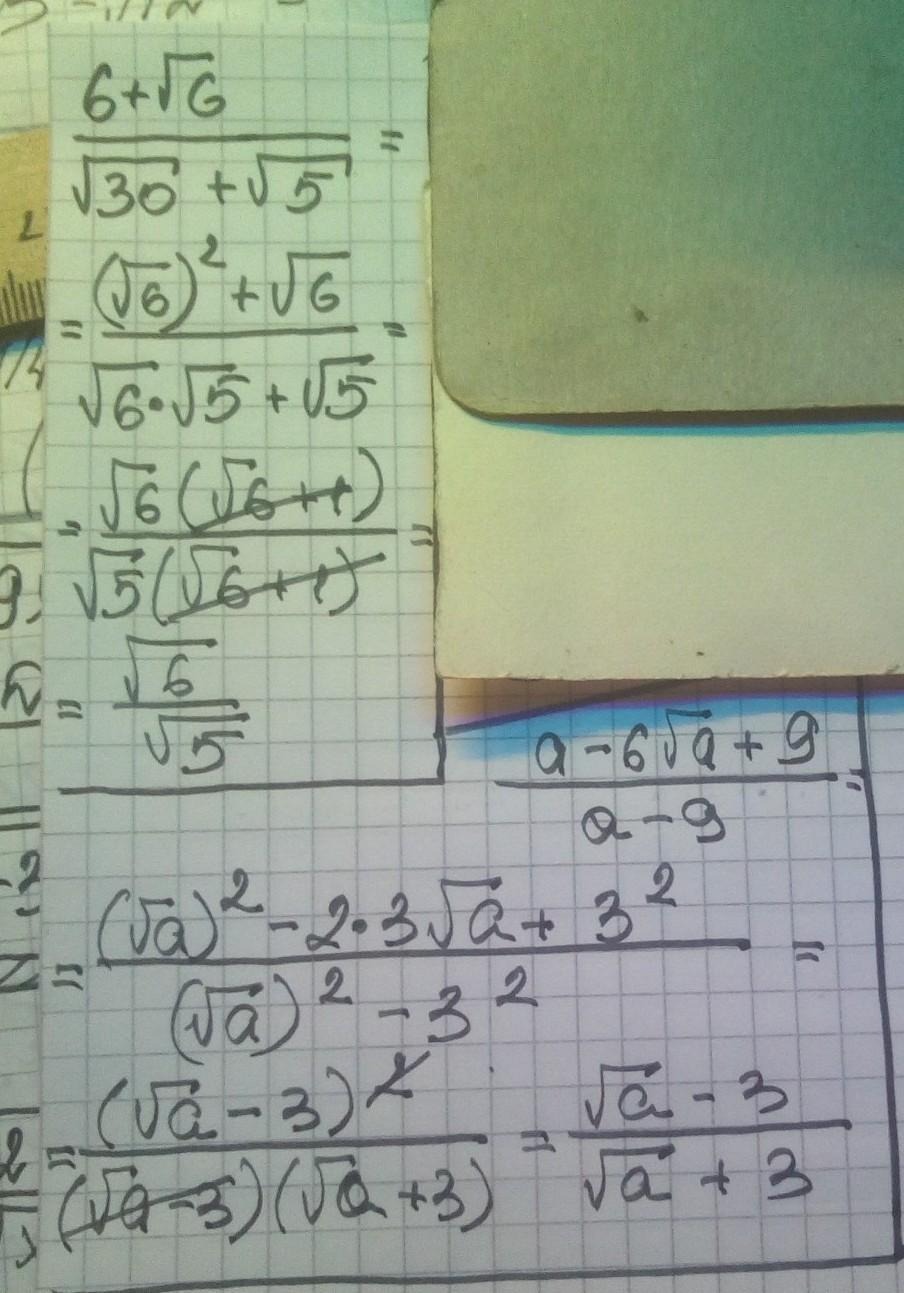 6+√6
√30 + √5 =
= (√6)² + √6
√6·√5 + √5 =
= √6(√6+1)
√5(√6+1) =
= √6
√5
a-6√a + 9
a-9 =
= (√a)² - 2·3√a + 3²
(√a)² - 3² =
= (√a - 3)²
(√a-3)(√a+3)
= √a - 3
√a + 3